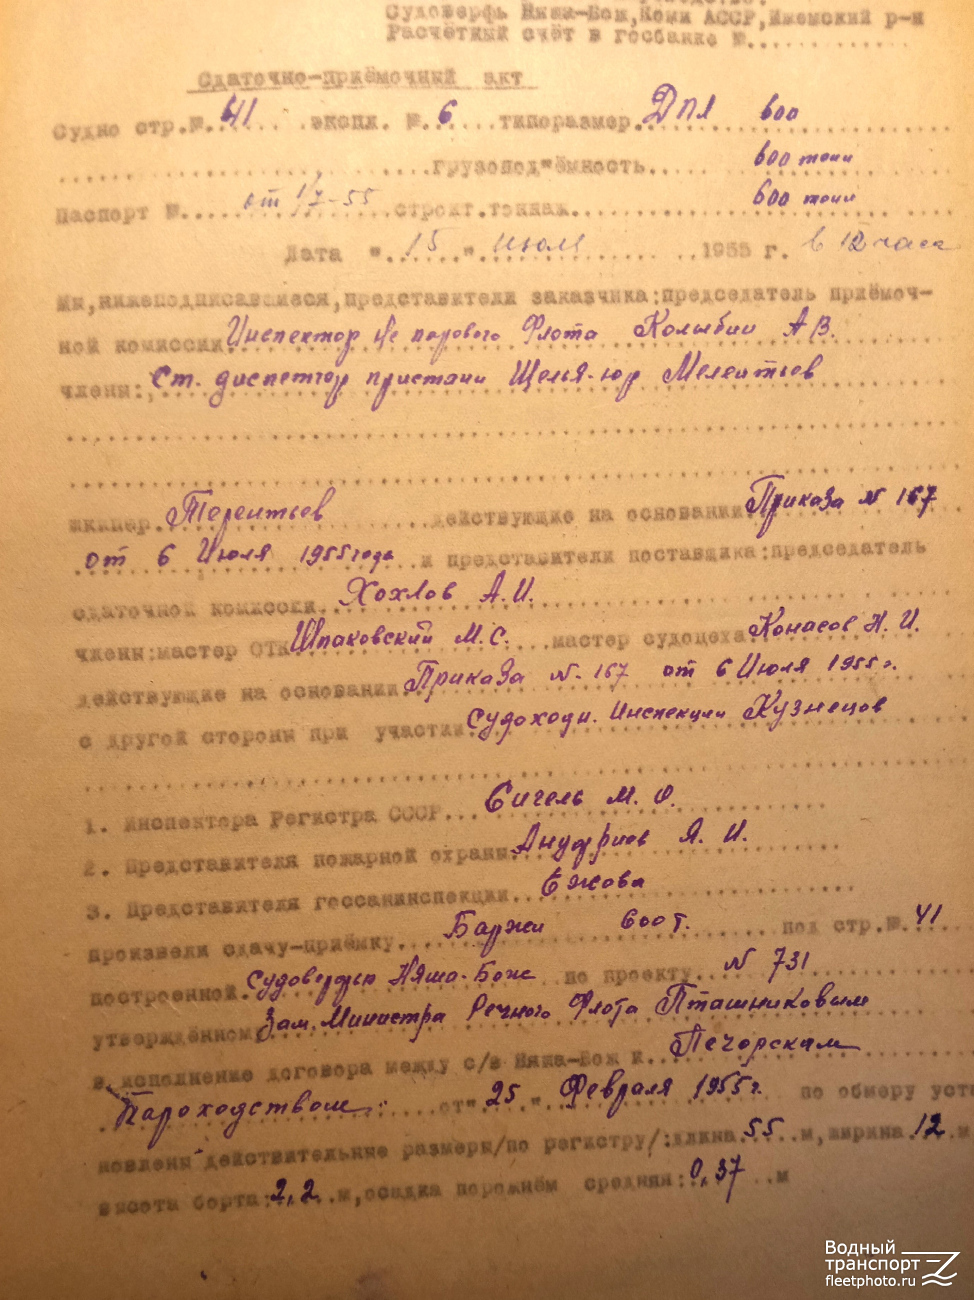 Судоверфь Няша-Бож, Коми АССР, Ижемский р-н
Расчётный счёт в госбанке №...
Сдаточно-приёмочный акт
Судно стр.№ 41 экспл. № 6 типоразмер ДПЛ 600
грузопод"ёмность 600 тонн
Паспорт № от 1/7-55 строит.тоннаж 600 тонн
Дата "15" июля 1955 г. в 12 часа
Мы, нижеподписавшиеся, представители заказчика: председатель приёмоч-
ной комиссии Инспектор Не парового Флота Колыбин А В.
члены: Ст. диспетчер пристани Щелья-юр Мелентьев
шкипер Терентьев действующие на основании Приказа № 167
от 6 Июля 1955 года и представители поставщика: председатель
сдаточной комиссии Хохлов А.И.
члены: мастер ОТК Шпаковский М.С. мастер судоцеха Канасов Н. И.
действующие на основании Приказа №-167 от 6 Июля 1955 г.
с другой стороны при участии Судоходн. Инспекции Кузнецов
1. Инспектора Регистра СССР Сигель М. О.
2. Представителя пожарной охраны Ануфриев Я. И.
3. Представителя госсанинспекции Ежова
произвели сдачу-приёмку Баржи 600 т. под стр.№ 41
построенной Судоверфью Няша-Бож по проекту № 731
утверждённом Зам. Министра Речного Флота Пташниковым
в исполнение договора между с/в Няша-Бож и Печорским
Пароходством: от "25" Февраля 1955 г. по обмеру уста
новлены действительные размеры/по регистру/: длина 55 м, ширина 12 м
высота борта: 2,2 м, осадка порожнём средняя: 0,37 м
Водный
транспорт
fleetphoto.ru